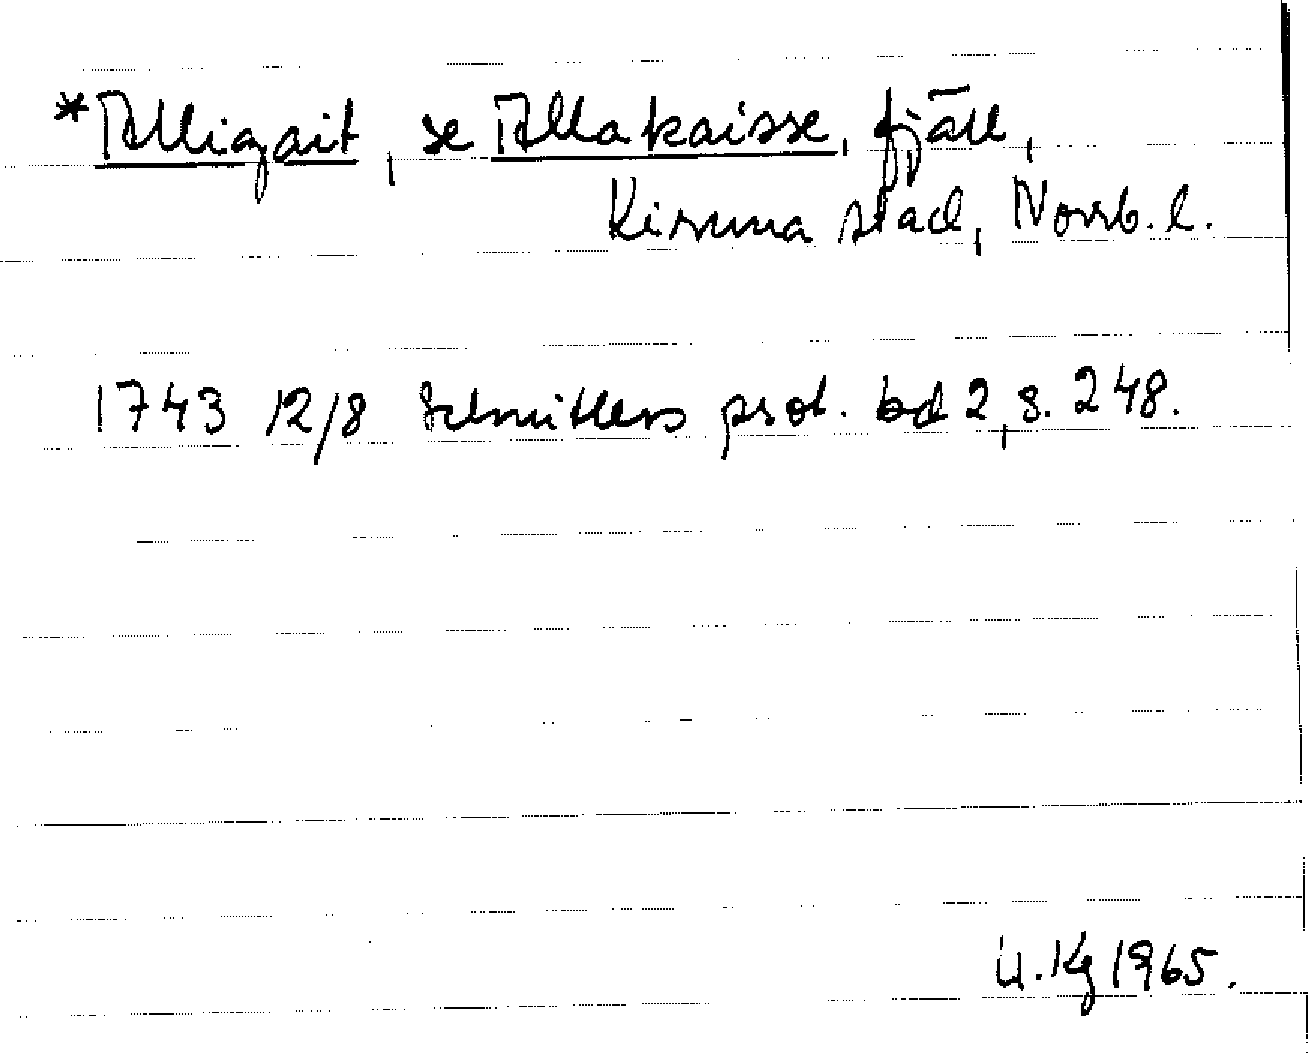 *Alligait, se Allakaisse, fjäll,
Kiruna stad, Norrb. l.
1743 12/8 Schnitlers prot. bd 2, s. 248.
U. Kg 1965.